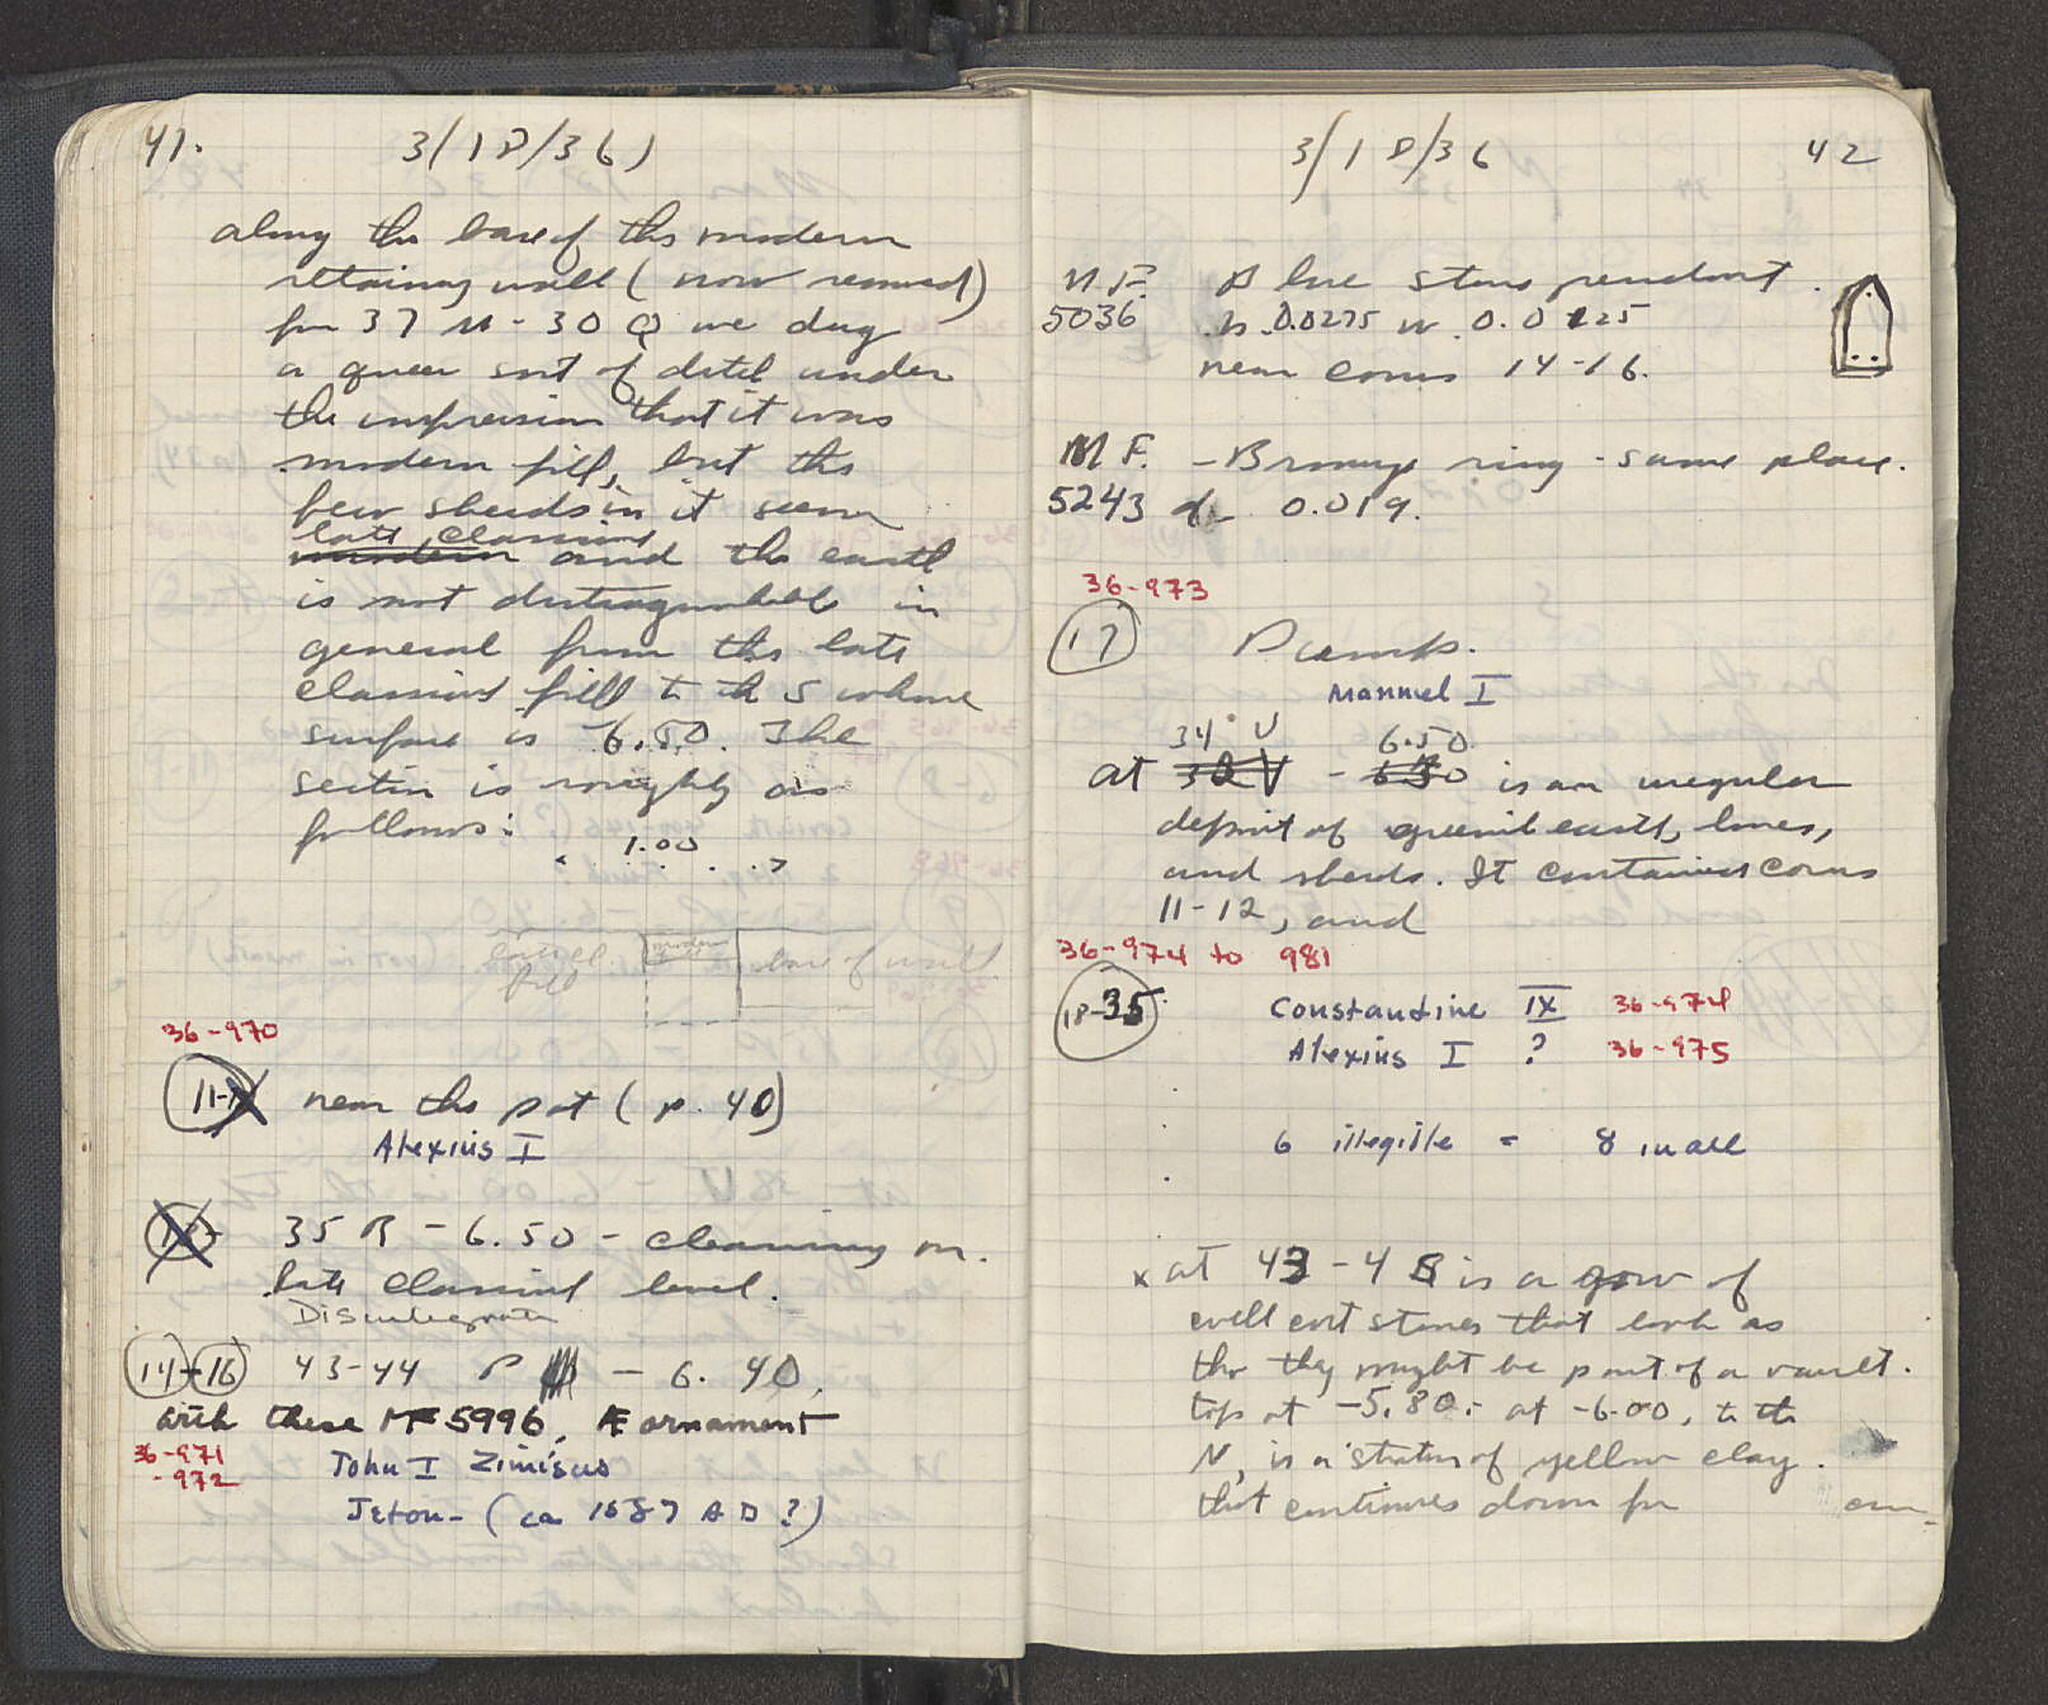 41.
3/18/36)
along the base of the modern
retaining wall (now removed)
for 37 M - 30 Q we dug
a queer sort of ditch under
the impression that it was
modern fill, but the
few sherds in it seem
late classical
modern and the earth
is not distinguishable in
general from the late
classical fill to the S whose
surface is -6.50. The
section is roughly as
follows:
1.00
fill
modern
base of wall
36-970
11- near the pot (p. 40)
Alexius I
35 R - 6.50 - cleaning on
late classical level.
Disintegrated
14-16 43-44 P - 6.40.
with these MF 5996, Æ ornament
36-971
-972
John I Zimisces
Jeton - (ca 1587 AD?)
3/18/36
42
M F. Blue stone pendant.
5036 h. 0.0275 w. 0.0125
near coins 14-16.
M F. - Bronze ring - same place.
5243 d 0.019.
36-973
17 Dump.
Manuel I
34 U 6.50
at 32 V - 6.50 is an irregular
deposit of greenish earth, bones,
and sherds. It contained coins
11-12, and
36-974 to 981
18-35 Constantine IX 36-974
Alexius I ? 36-975
6 illegible = 8 in all
x at 43-48 is a group of
well cut stones that look as
tho they might be part of a vault.
top at -5.80. - at -6.00, to the
N, is a stratum of yellow clay
that continues down for